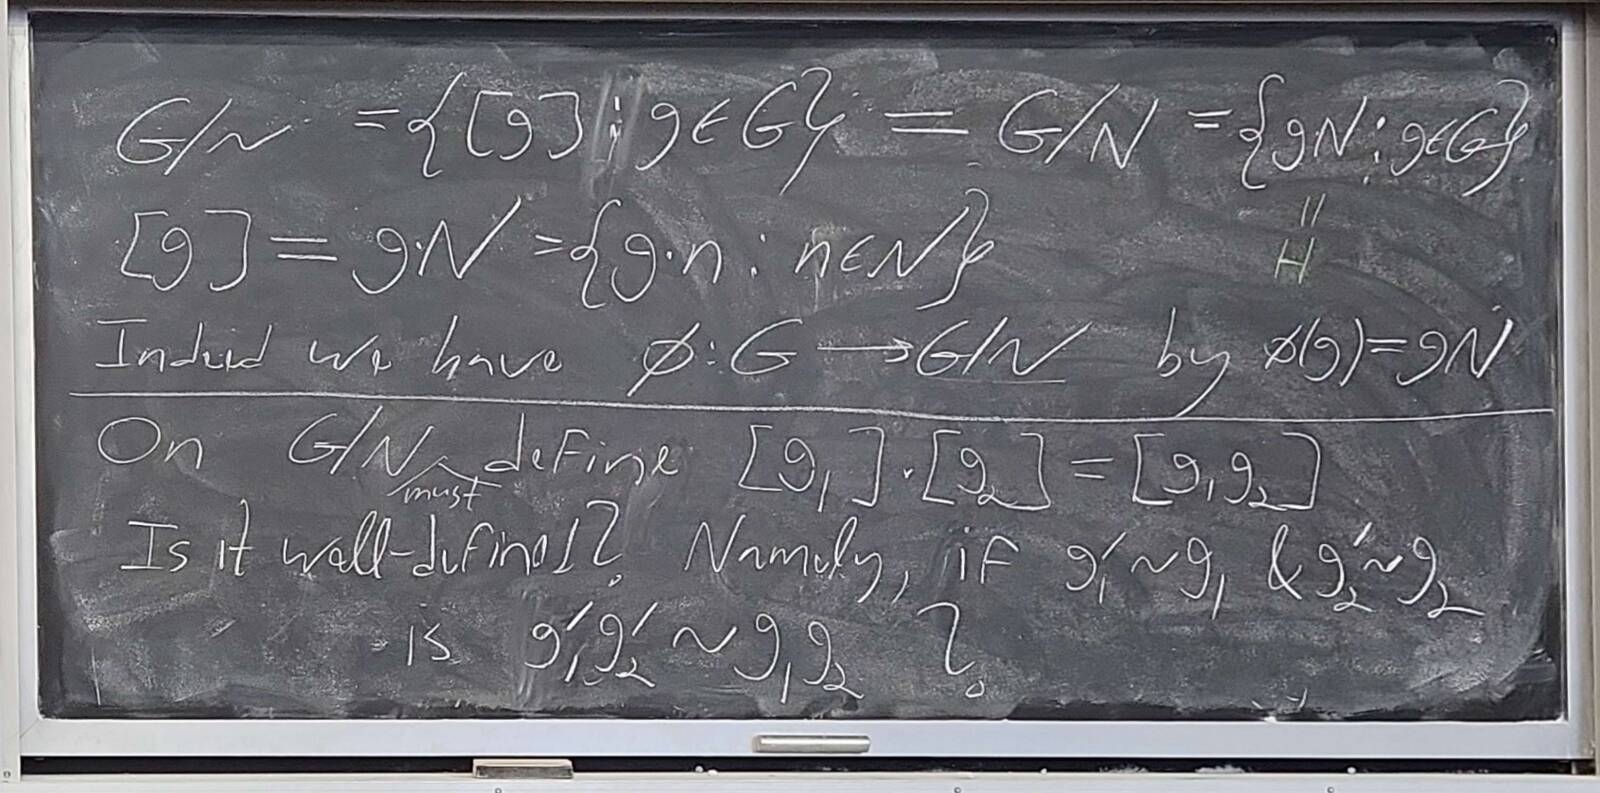 G/~ = {[g] : g∈G} = G/N = {gN : g∈G}
[g] = g·N = {g·n : n∈N}
"
H
Indeed we have ø : G → G/N by ø(g) = gN
On G/N must define [g₁]·[g₂] = [g₁g₂]
Is it well-defined? Namely, if g₁' ~ g₁ & g₂' ~ g₂
is g₁'g₂' ~ g₁g₂ ?